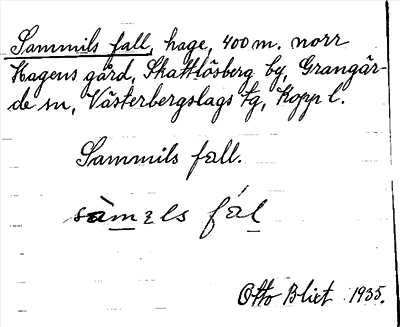 Sammils fall, hage, 400 m. norr
Hagens gård, Skattlösberg by, Grangär-
de sn, Västerbergslags tg, Kopp l.
Sammils fall.
sàmɛls fál
Otto Blixt 1935.